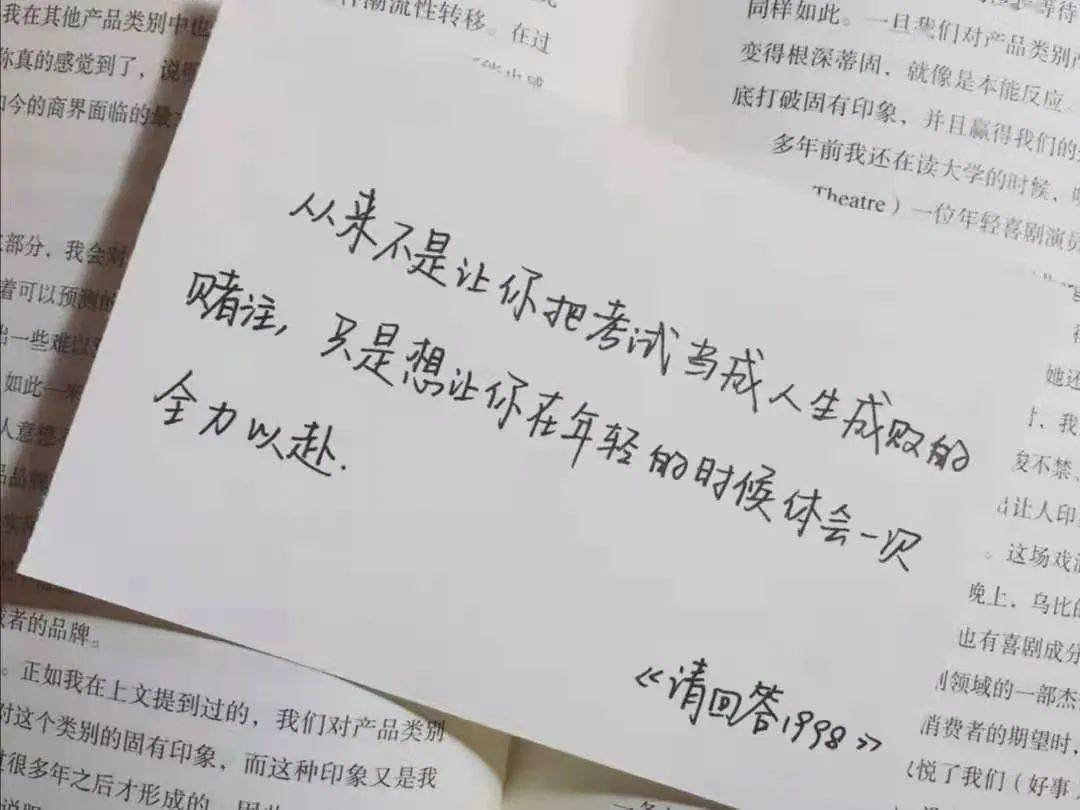 我在其他产品类别中也
你真的感觉到了，说明
如今的商界面临的最
部分，我会对
着可以预测的
出一些难以
如此一来
人意想
品品牌
者的品牌。
。正如我在上文提到过的，我们对产品类别
对这个类别的固有印象，而这种印象又是我
很多年之后才形成的。因此
潮流性转移。在过
等待
同样如此。一旦我们对产品类别产
变得根深蒂固，就像是本能反应。
底打破固有印象，并且赢得我们的
多年前我还在读大学的时候，
Theatre）一位年轻喜剧演员
从来不是让你把考试当成人生成败的
赌注，只是想让你在年轻的时候体会一次
全力以赴.
《请回答1998》
她还
，我
不禁
让人印
。这场戏
晚上，乌比的
也有喜剧成分
领域的一部杰
消费者的期望时，
悦了我们（好事